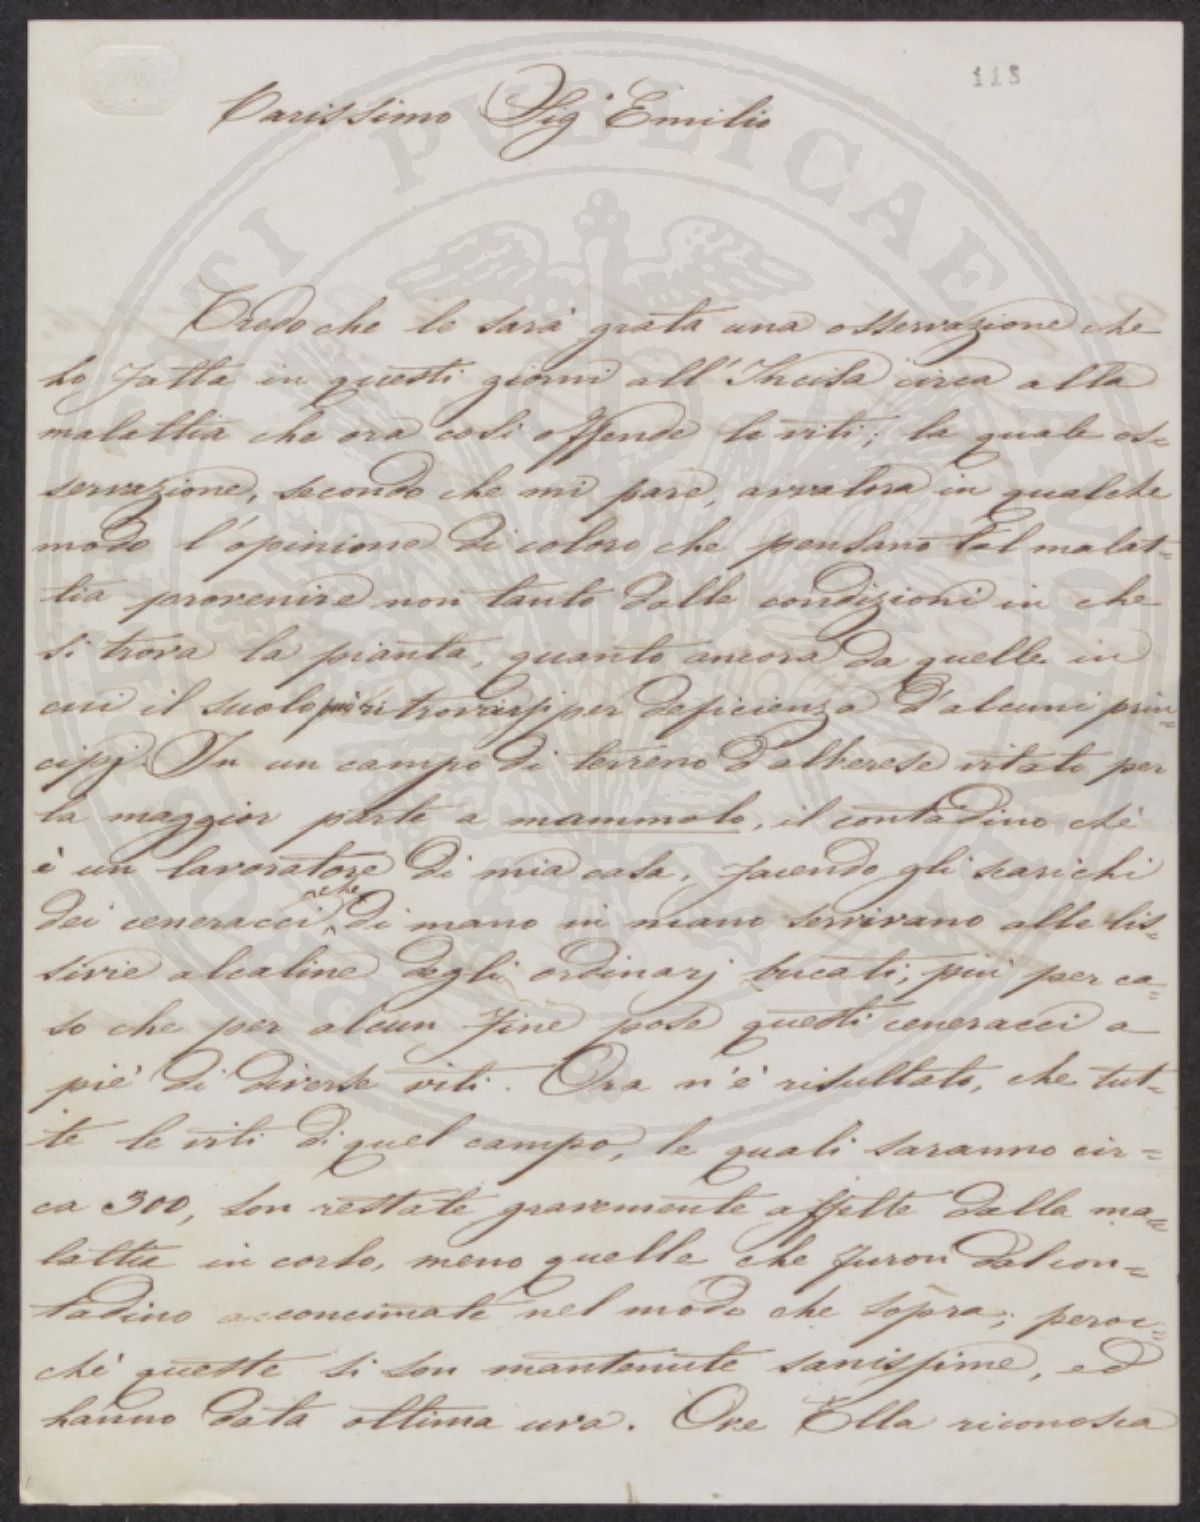 118
Carissimo Sig.r Emilio
Credo che le sarà grata una osservazione che
ho fatta in questi giorni all'Incisa circa alla
malattia che ora così offende le viti; la quale os=
servazione, secondo che mi pare, avvalora in qualche
modo l'opinione di coloro che pensano tal malat=
tia provenire non tanto dalle condizioni in che
si trova la pianta, quanto ancora da quelle in
cui il suolo può ritrovarsi per deficienza d'alcuni prin=
cipj. In un campo di terreno d'alberese vitato per
la maggior parte a mammolo, il contadino che
è un lavoratore di mia casa, facendo gli scarichi
dei ceneracci che di mano in mano servivano alle lis=
sivie alcaline degli ordinarj bucati; più per ca=
so che per alcun fine pose questi ceneracci a
piè di diverse viti. Ora n'è risultato, che tut=
te le viti di quel campo, le quali saranno cir=
ca 300, son restate gravemente affette dalla ma=
lattia in corso, meno quelle che furon dal con=
tadino acconcimate nel modo che sopra; peroc=
chè queste si son mantenute sanissime, ed
hanno data ottima uva. Ove Ella riconosca